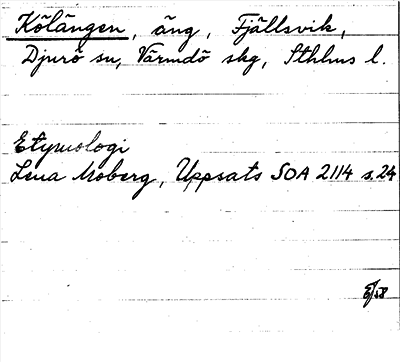 Kölängen, äng, Fjällsvik,
Djurö sn, Värmdö skg, Sthlms l.
Etymologi
Lena Moberg, Uppsats SOA 2114 s. 24